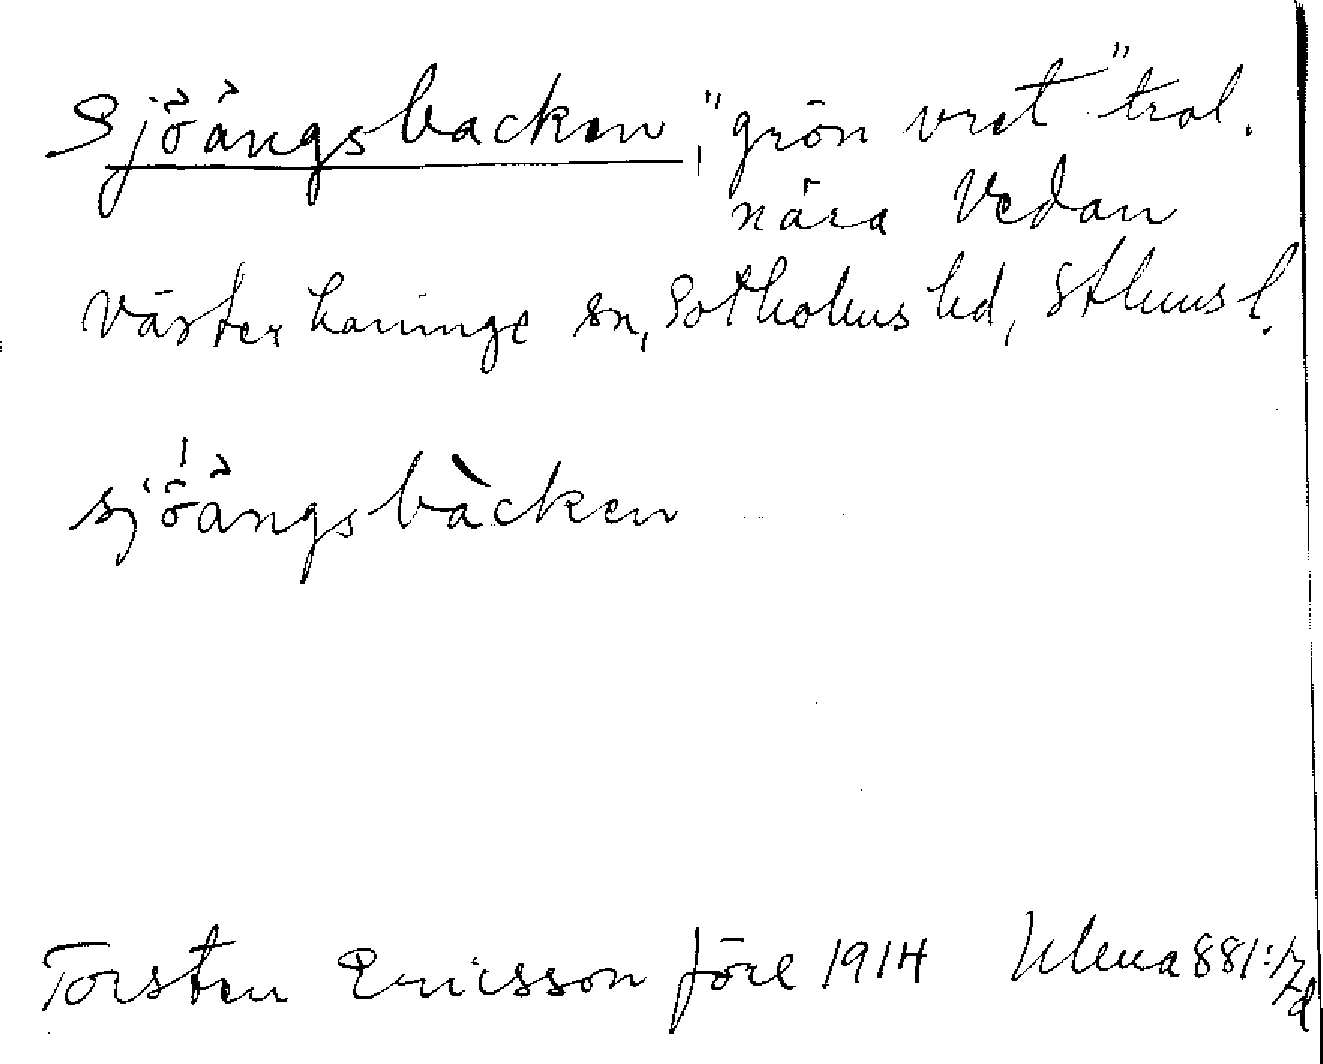 Sjöängsbacken, "grön vret" trol.
nära Vedan
Västerhaninge sn, Sotholms hd, Sthlms l.
sjöängsbàcken
Torsten Ericsson före 1914 Ulma 881: